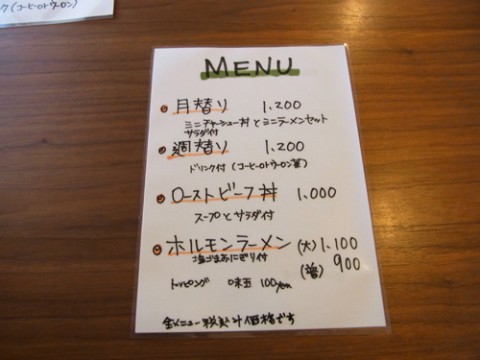 ク(コーヒーorウーロン)
MENU
月替り 1,200
ミニチャーシュー丼とミニラーメンセット
サラダ付
週替り 1,200
ドリンク付(コーヒーorウーロン茶)
ローストビーフ丼 1,000
スープとサラダ付
ホルモンラーメン (大) 1,100
塩ごまおにぎり付 (普) 900
トッピング 味玉 100yen
全メニュー税込み価格です